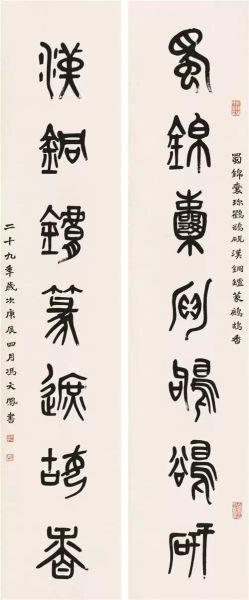 蜀錦囊珍鸜鵒硯漢銅鑪篆鷓鴣香
蜀錦囊珍鸜鵒研
漢銅鑪篆遮姑香
二十九年歲次庚辰四月馮文鳳書